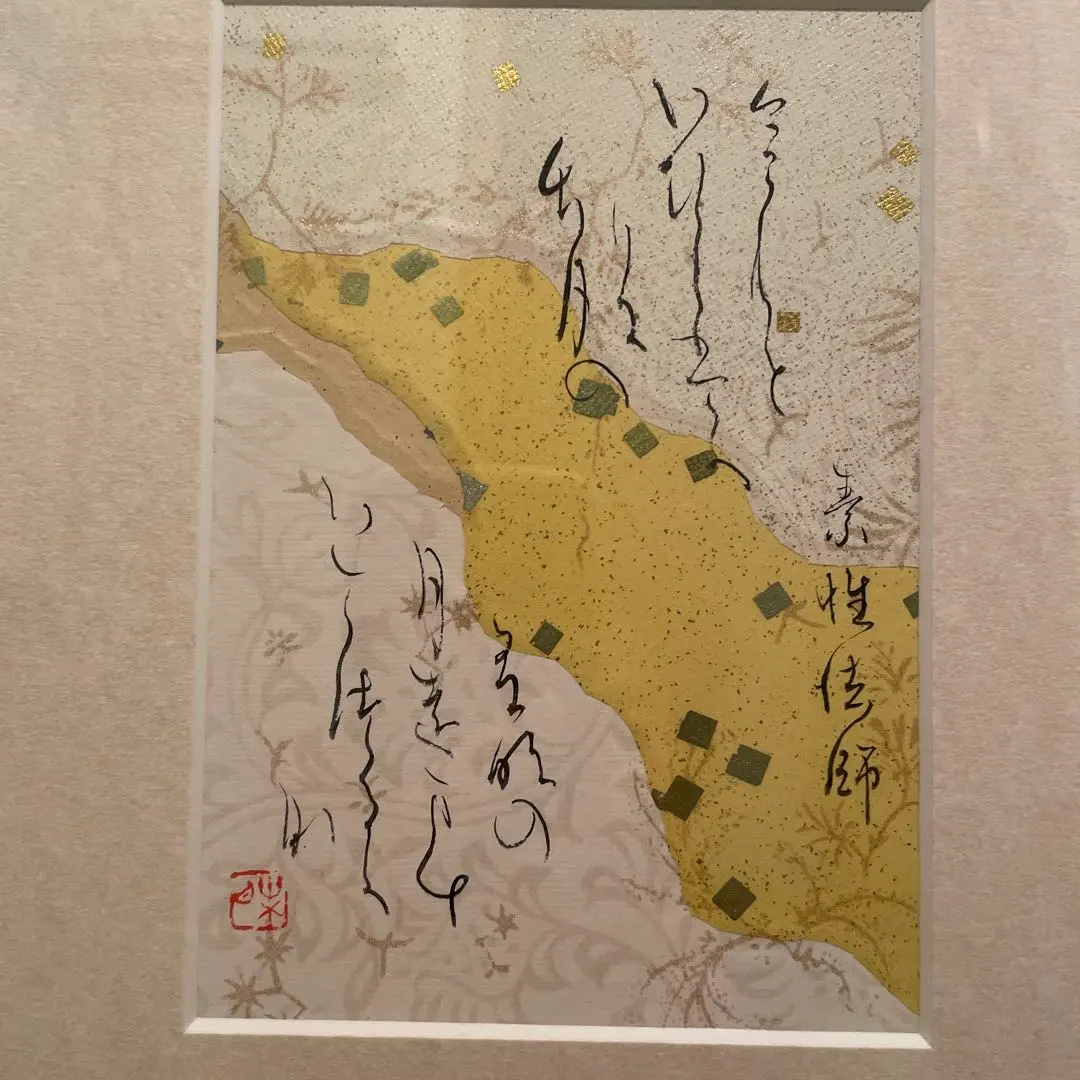 素性法師
今こむと
いひしはかり
に
長月の
有明の
月をまち
いてつるか
な